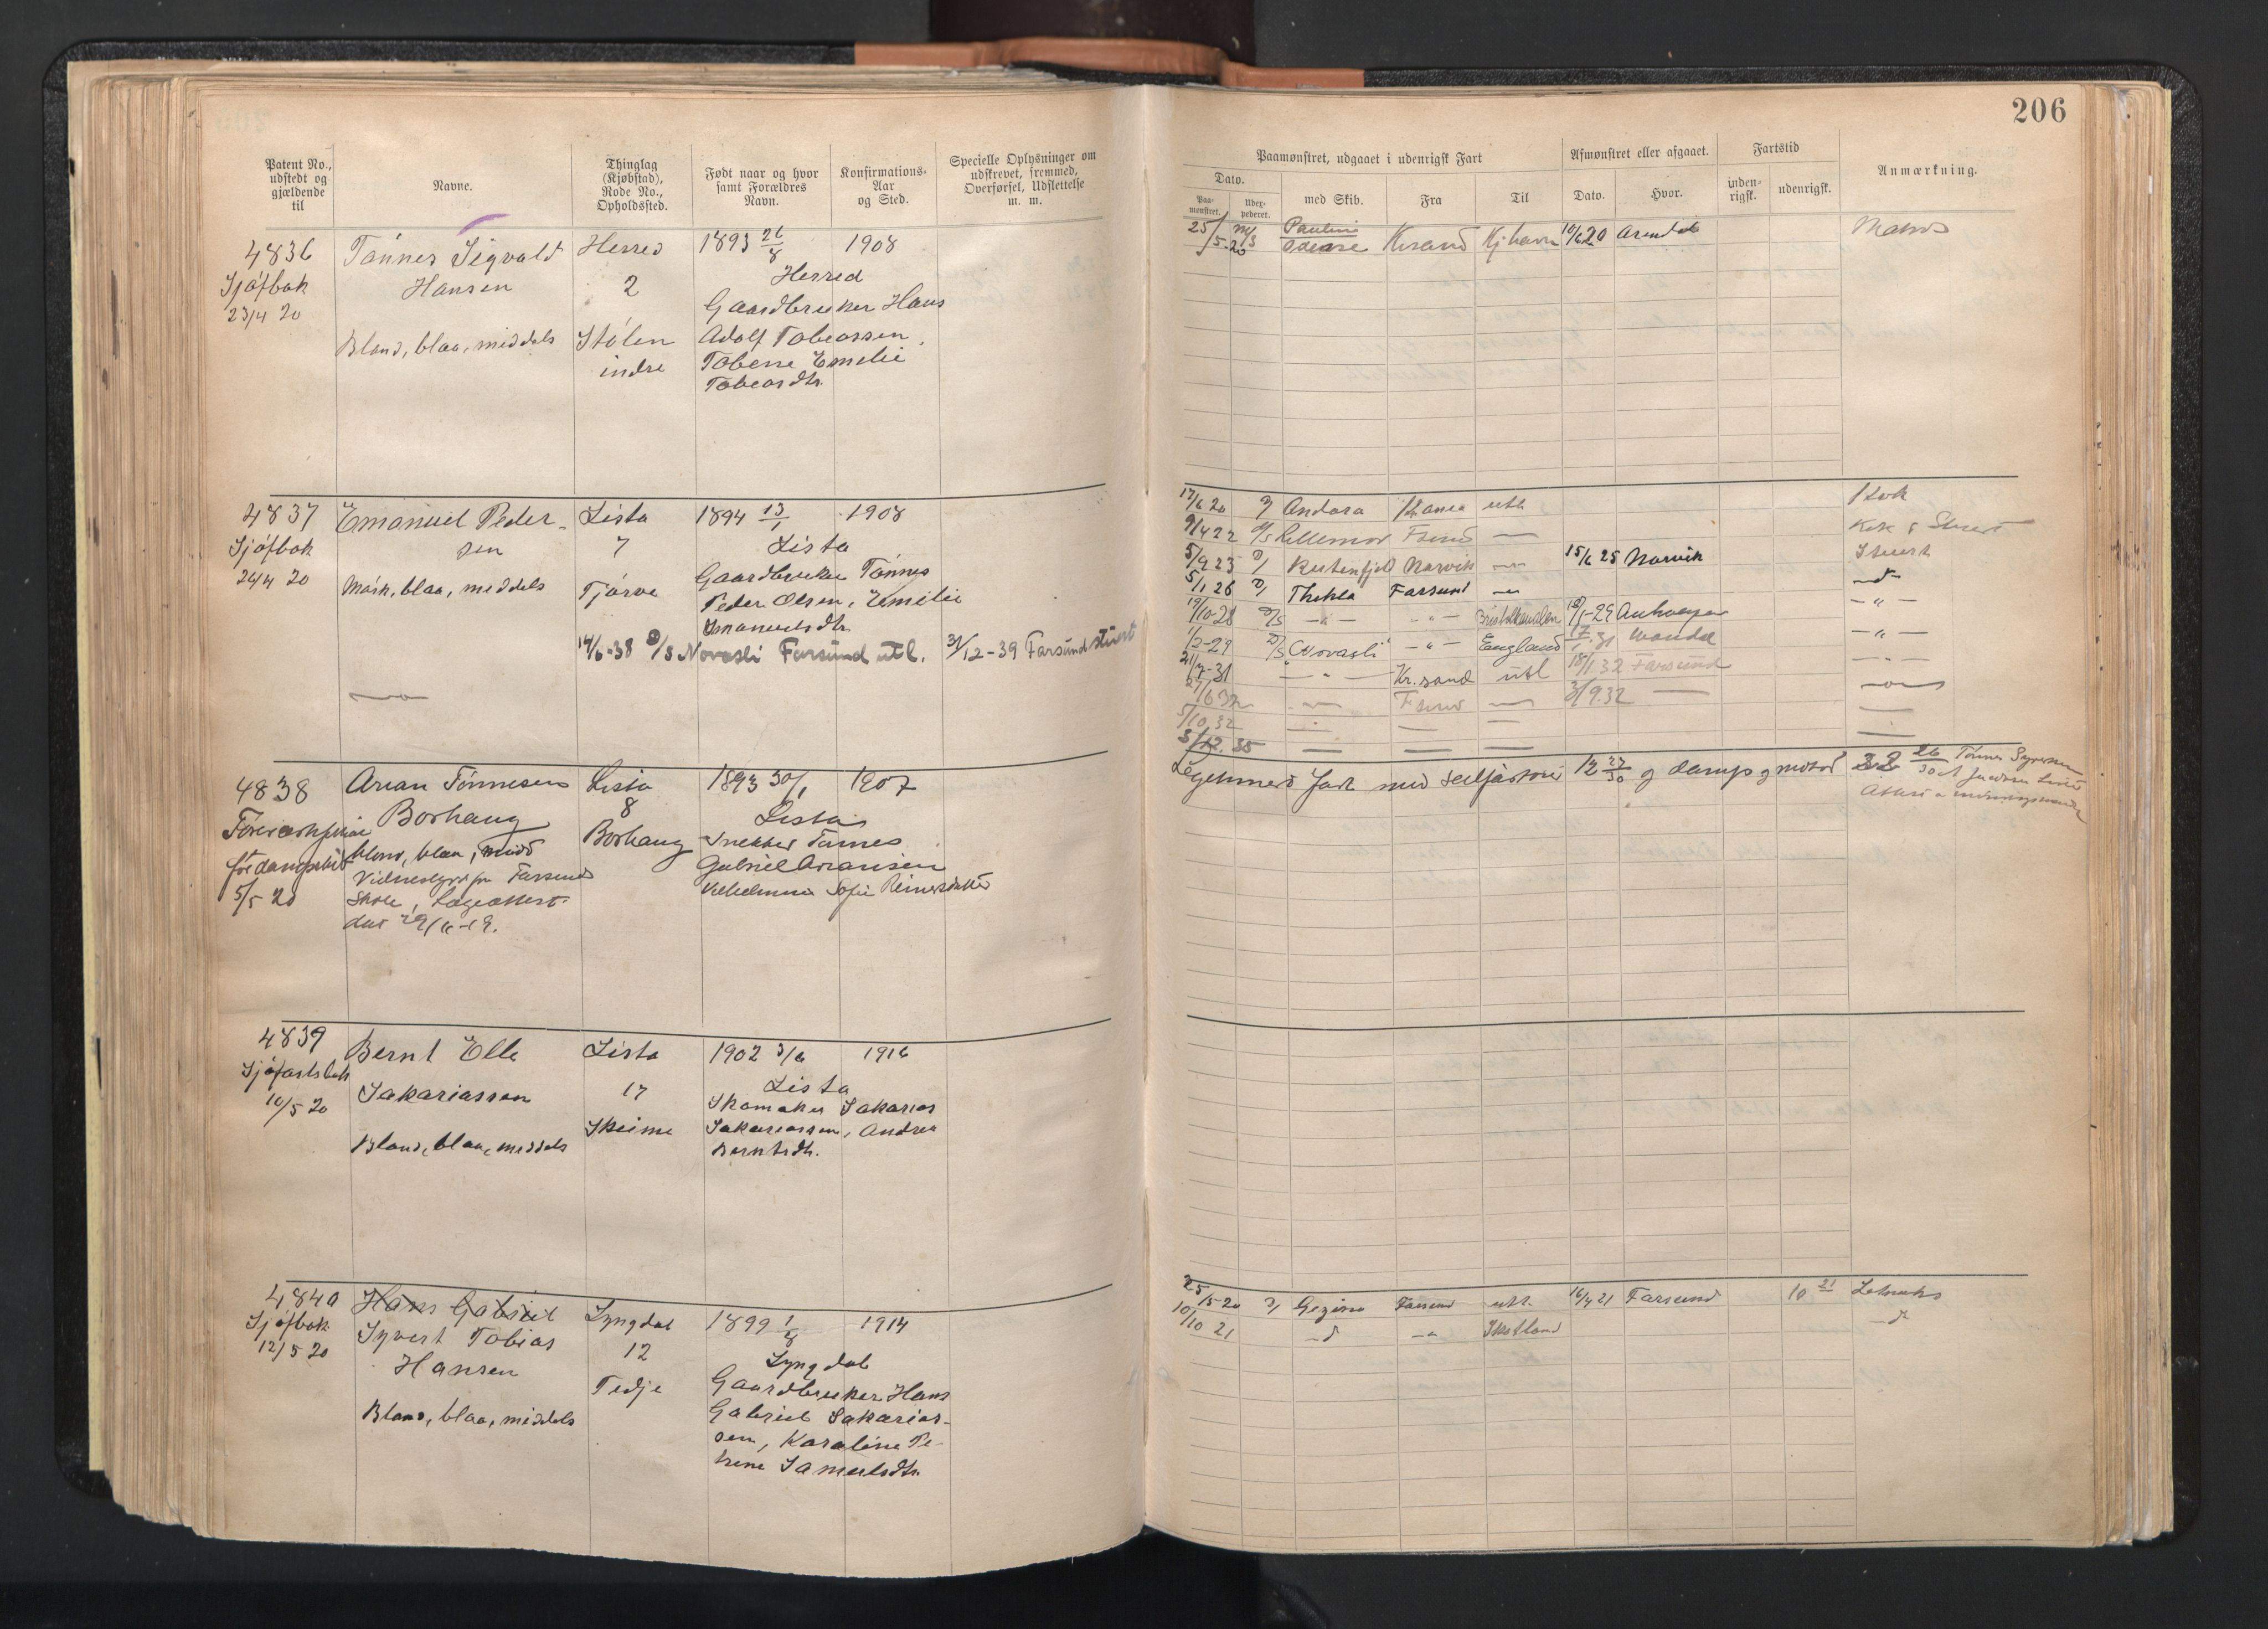 206
Patent No., udstedt og gjældende til
Navne.
Thinglag (Kjøbstad), Rode No., Opholdssted.
Født naar og hvor samt Forældres Navn.
Konfirmations-Aar og Sted.
Specielle Oplysninger om udskrevet, fremmed, Overførsel, Udslettelse m. m.
Paamønstret, udgaaet i udenrigsk Fart
Afmønstret eller afgaaet.
Fartstid
Anmærkning.
Dato.
Paamønstret.
med Skib.
Fra
Til
Dato.
Hvor.
inden-rigsk.
udenrigsk.
4836
Sjøfbok
23/4 20
Tønnes Sigvald
Hansen
Blond, blaa, middels
Herred
2
Stølen
indre
1893 26/8
1908
Herred
Gaardbruker Hans
Adolf Tobiassen,
Tobene Emelie
Tobiasdtr.
25/5-20 M/S Pauline
Odense Krsand Kjhavn 10/6 20 Arendal Matros
4837
Sjøfbok
24/4 20
Emanuel Peder-
sen
Mørk, blaa, middels
Lista
7
Tjørve
1894 13/1
1908
Lista
Gaardbruker Tønnes
Peder Olsen, Emilie
Emanuelsdtr.
14/6-38 D/S Novasli Farsund utl. 31/12-39 Farsund stuert
17/6 20 Andora utl Kok
9/4 22 Lillemor Fsund — Kok & Stuert
5/9 23 Rutenfjell Narvik 15/6 25 Narvik Stuert
5/1 26 Thekla Farsund
19/10-28 D/S — " — Bristolkanalen -29
1/2-29 D/S "Novasli" — " — England
21/7-31 — " — Kr.sand utl 18/1 32 Farsund
27/6 32 Fsund 3/9.32
5/10.32
3/12.35
4838
5/5 20
Arian Tønnesen
Borhaug
blond, blaa, midd
Farsund
Skole, Lægeattest
dat 29/6-19.
Lista
8
Borhaug
1893 30/1
1907
Lista
Snekker Tønnes
Gabriel Aransen
Vilhelmine Sofie Reinersdatter
Legitimert fart med seilfartøi 12 27/30 og damp og motor 22 26/30
4839
Sjøfartsbok
10/5 20
Bernt Elle
Sakariassen
Blond, blaa, middels
Lista
17
Skeime
1902 3/6
1916
Lista
Skomaker Sakarias
Sakariassen, Andrea
Berntsdtr.
4840
Sjøfbok
12/5 20
Hans Gabriel
Syvert Tobias
Hansen
Blond, blaa, middels
Lyngdal
12
Tedje
1899 1/8
1914
Lyngdal
Gaardbruker Hans
Gabriel Sakarias-
sen, Karoline Pe-
trine Samuelsdtr.
25/5-20 Gezina Farsund utl. 16/4 21 Farsund 10 21 Letmatros
10/10 21 Skotland